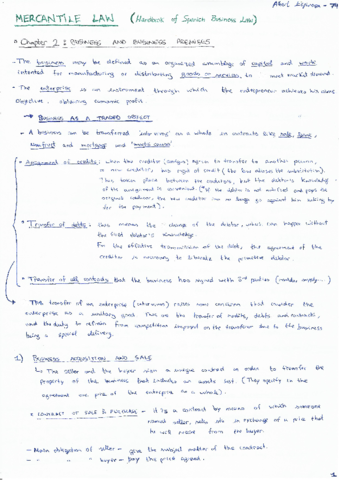 MERCANTILE LAW (Handbook of Spanish Business Law)
Chapter 2: BUSINESS AND BUSINESS PREMISES
- The business may be defined as an organized assemblage of capital and work
intended for manufacturing or distributing goods or services, to meet market demand.
- The enterprise is an instrument through which the entrepreneur achieves his same
objective: obtaining economic profit.
→ BUSINESS AS A TRADED OBJECT
- A business can be transferred as a whole
and mortgage and
- Assignment of credits: when the creditor (assigns) agree to transfer to another person,
a new creditor, his right of credit
This takes place between the creditors, but the debtor's knowledge
of the assignment is convenient. (If the debtor is not notified and pays the
original creditor, the new creditor can no longer go against him asking
for the payment).
- Transfer of debts: this means the change of the debtor, which can happen without
the first debtor's knowledge.
For the effective transmission of the debt, the agreement of the
creditor is necessary to liberate the primitive debtor.
- Transfer of all contracts that the business has signed with 3rd parties
The transfer of an enterprise raises some concerns that consider the
enterprise as a unitary good. Thus are the transfer of credits, debts and contracts,
and the duty to refrain from competition imposed on the transferor due to the business
being a special delivery.
1) BUSINESS ACQUISITION AND SALE
↳ The seller and the buyer sign a unique contract in order to transfer the
property of the business that includes an assets list (They specify in the
agreement one price of the enterprise as a whole).
· CONTRACT OF SALE & PURCHASE - it is a contract by means of which someone
named seller, sells in exchange of a price that
he will receive from the buyer.
- Main obligation of seller - give the material matter of the contract.
" " " buyer - pay the price agreed.
1